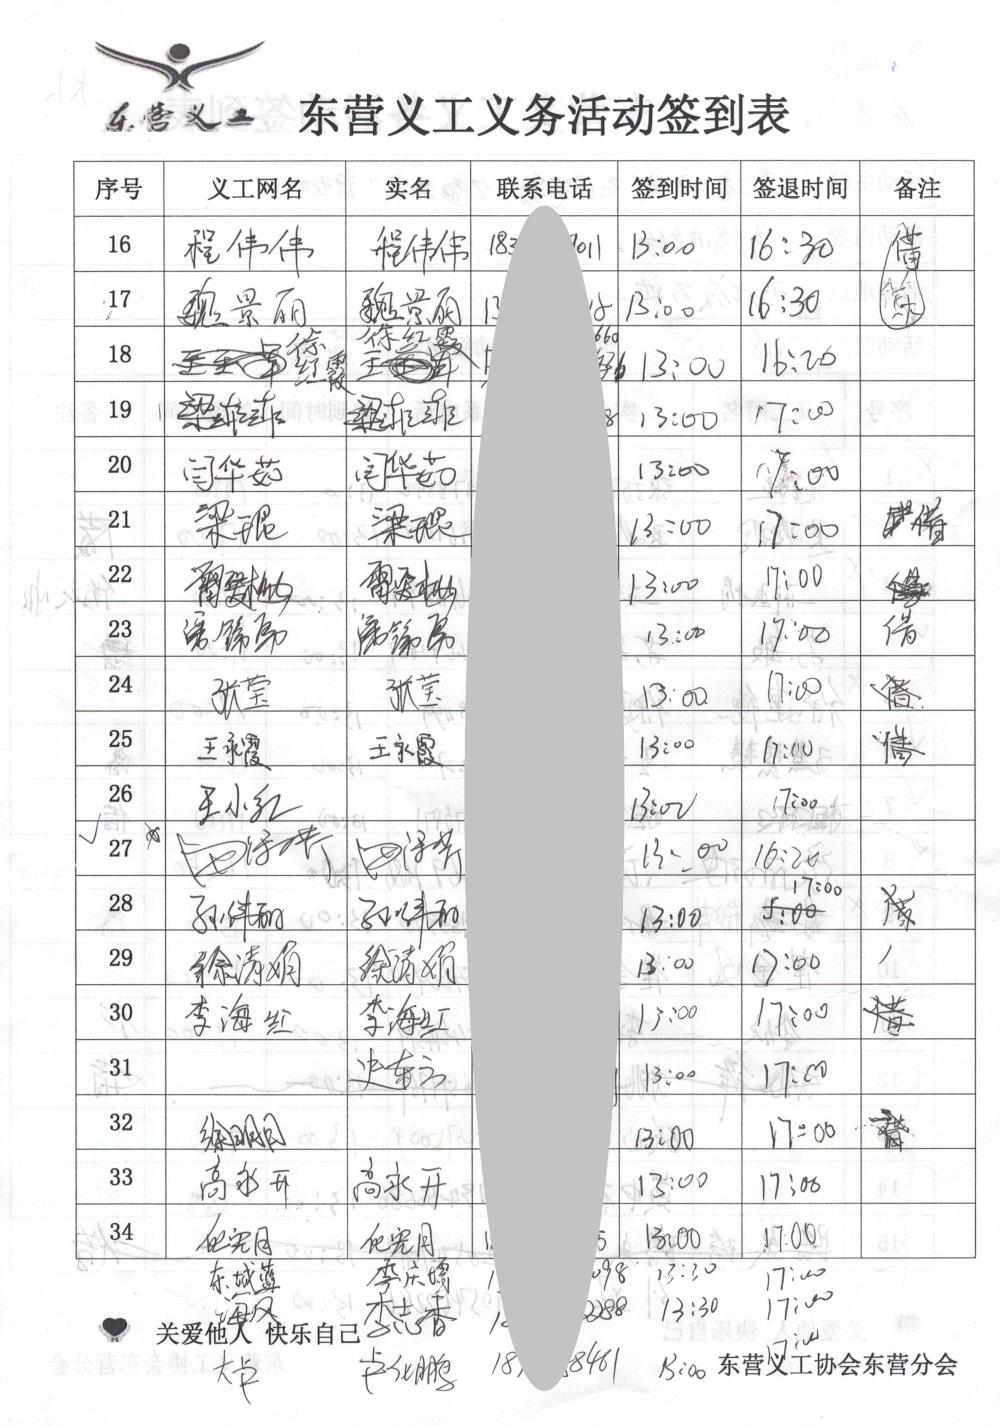 东营义工 东营义工义务活动签到表
序号 义工网名 实名 联系电话 签到时间 签退时间 备注
16 程伟伟 程伟伟 183 7011 13:00 16:30 借
17 魏景丽 魏景丽 13 13:00 16:30
18 徐红霞 徐红霞 660 13:00 16:20
19 梁菲菲 梁菲菲 8 13:00 17:00
20 闫华茹 闫华茹 13:00 17:00
21 梁琨 梁琨 13:00 17:00 借
22 13:00 17:00
23 13:00 17:00 借
24 张莹 张莹 13:00 17:00 借
25 王永霞 王永霞 13:00 17:00 借
26 王小红 13:00 17:00
27 13:00 16:20
28 孙伟丽 孙伟丽 13:00 17:00
29 徐清娟 徐清娟 13:00 17:00
30 李海红 李海红 13:00 17:00 借
31 史东云 13:00 17:00
32 徐明月 13:00 17:00
33 高永开 高永开 13:00 17:00
34 13:00 17:00
东城蓝 098 13:30 17:00
海风 李志香 2288 13:30 17:00
关爱他人 快乐自己
大卓 卓化鹏 18 8461 13:00 17:00
东营义工协会东营分会